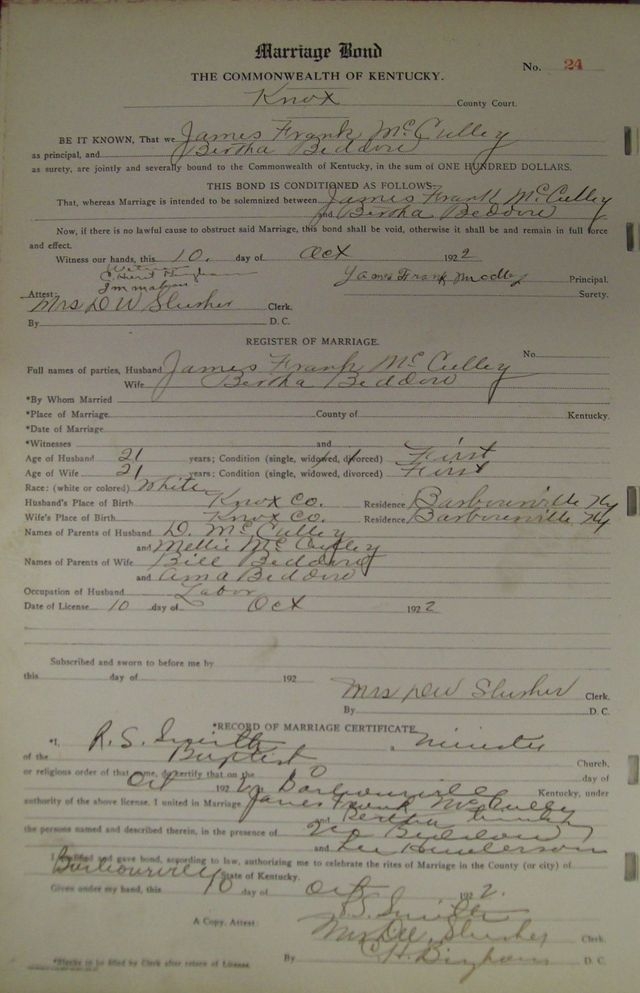 Marriage Bond
No. 24
THE COMMONWEALTH OF KENTUCKY.
Knox County Court.
BE IT KNOWN, That we James Frank McCulley
as principal, and Bertha Beddow
as surety, are jointly and severally bound to the Commonwealth of Kentucky, in the sum of ONE HUNDRED DOLLARS.
THIS BOND IS CONDITIONED AS FOLLOWS:
That, whereas Marriage is intended to be solemnized between James Frank McCulley
and Bertha Beddow
Now, if there is no lawful cause to obstruct said Marriage, this bond shall be void, otherwise it shall be and remain in full force
and effect.
Witness our hands, this 10. day of Oct 1922
James Frank Principal.
Surety.
Attest:
Mrs D W Slusher Clerk.
By D. C.
REGISTER OF MARRIAGE.
No.
Full names of parties, Husband James Frank McCulley
Wife Bertha Beddow
*By Whom Married
*Place of Marriage County of Kentucky.
*Date of Marriage
*Witnesses and
Age of Husband 21 years; Condition (single, widowed, divorced) First
Age of Wife 21 years; Condition (single, widowed, divorced) First
Race: (white or colored) White
Husband's Place of Birth Knox Co. Residence Barbourville Ky
Wife's Place of Birth Knox Co. Residence Barbourville Ky
Names of Parents of Husband D. McCulley
and Mellie McCulley
Names of Parents of Wife Bill Beddow
and Ama Beddow
Occupation of Husband Labor
Date of License 10 day of Oct 1922
Subscribed and sworn to before me by
this day of 192
Mrs DW Slusher Clerk.
By D. C.
*RECORD OF MARRIAGE CERTIFICATE
*I, R. S. Smith, Minister
of the Baptist Church,
or religious order of that name, do certify that on the 10 day of
Oct 1922, Barbourville Kentucky, under
authority of the above license, I united in Marriage James Frank McCulley
and Bertha
the persons named and described therein, in the presence of Beddow
and Henderson
I qualified and gave bond, according to law, authorizing me to celebrate the rites of Marriage in the County (or city) of
Barbourville State of Kentucky.
Given under my hand, this 10 day of Oct 1922.
R. S. Smith
A Copy. Attest: Mrs DW Slusher Clerk.
By C. H. Bingham D. C.
*Blanks to be filled by Clerk after return of License